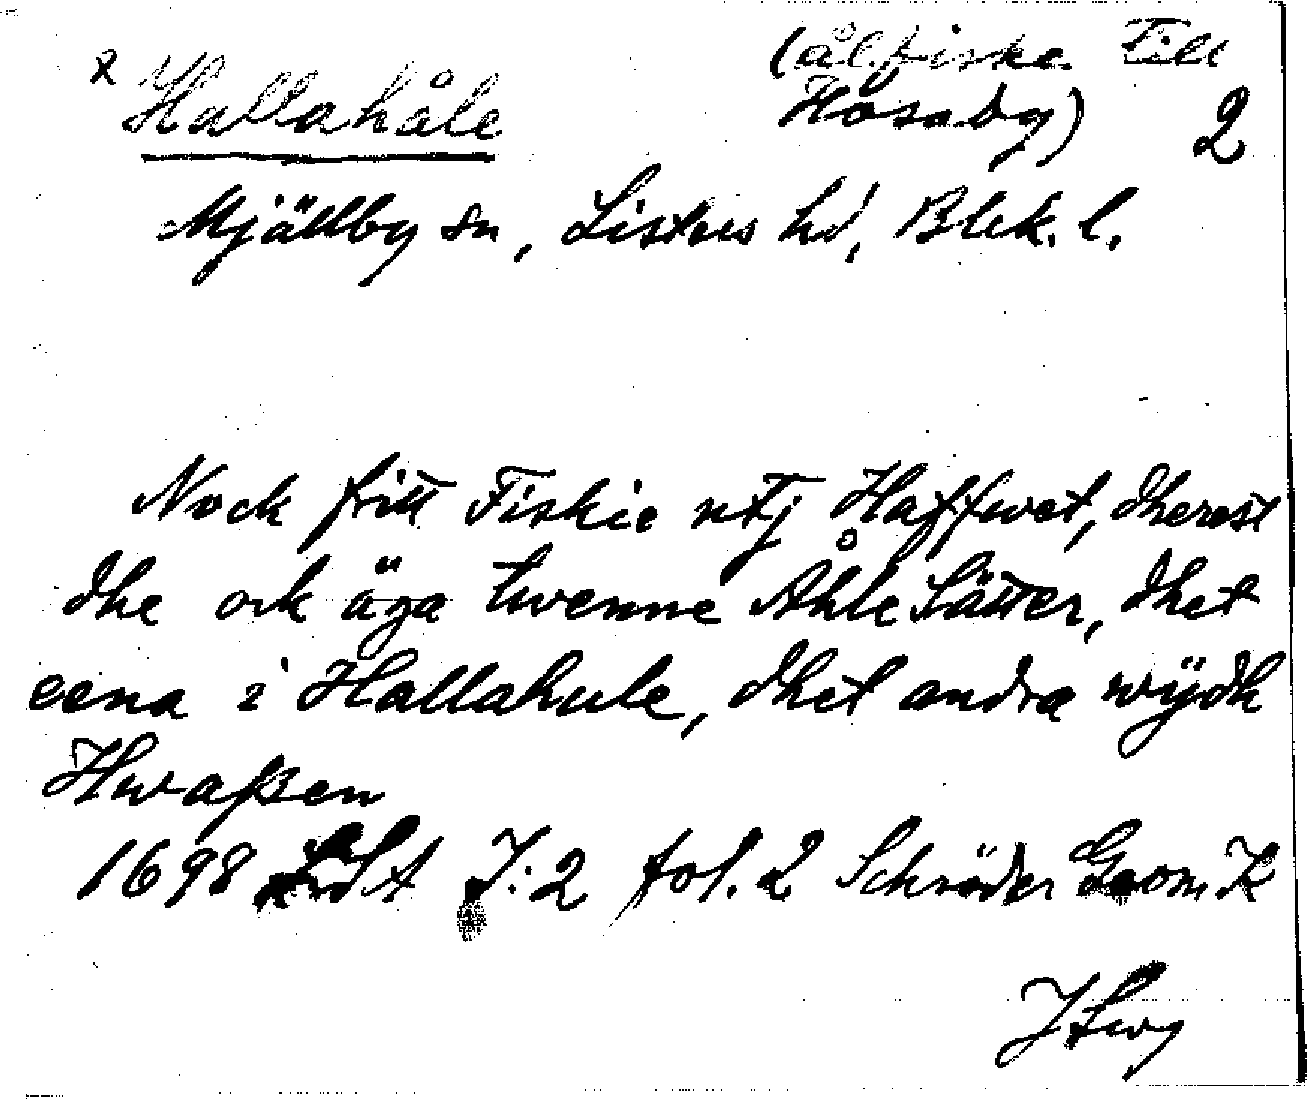 x Hallahåle (ålfiske till Hosaby) 2
Mjällby sn, Listers hd, Blek. l.
Nock fritt Fiskie utj Haffwet, dherest
dhe ock äga twenne Åhle Sätter, dhet
eena i Hallahule, dhet andra wÿdh
Hwaßen
1698 LSt J:2 fol. 2 Schröder Geom. K